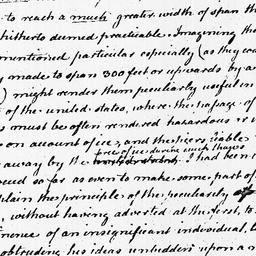 to reach a much greater width of span th
hitherto deemed practicable. Imagining tha
mentioned particular especially (as they cou
y made to span 300 feet or upwards by a
) might render them peculiarly useful in
of the united states, where the passage of
s must be often rendered hazardous or
on account of ice, and the piers liable
bree of ice during such thaws
away by the I had been
ceed so far as even to make some part of
plain the principle of the peculiarity of
, without having adverted at the first, to
uence of an insignificant individual, t
obtruding his ideas unbidden upon a n